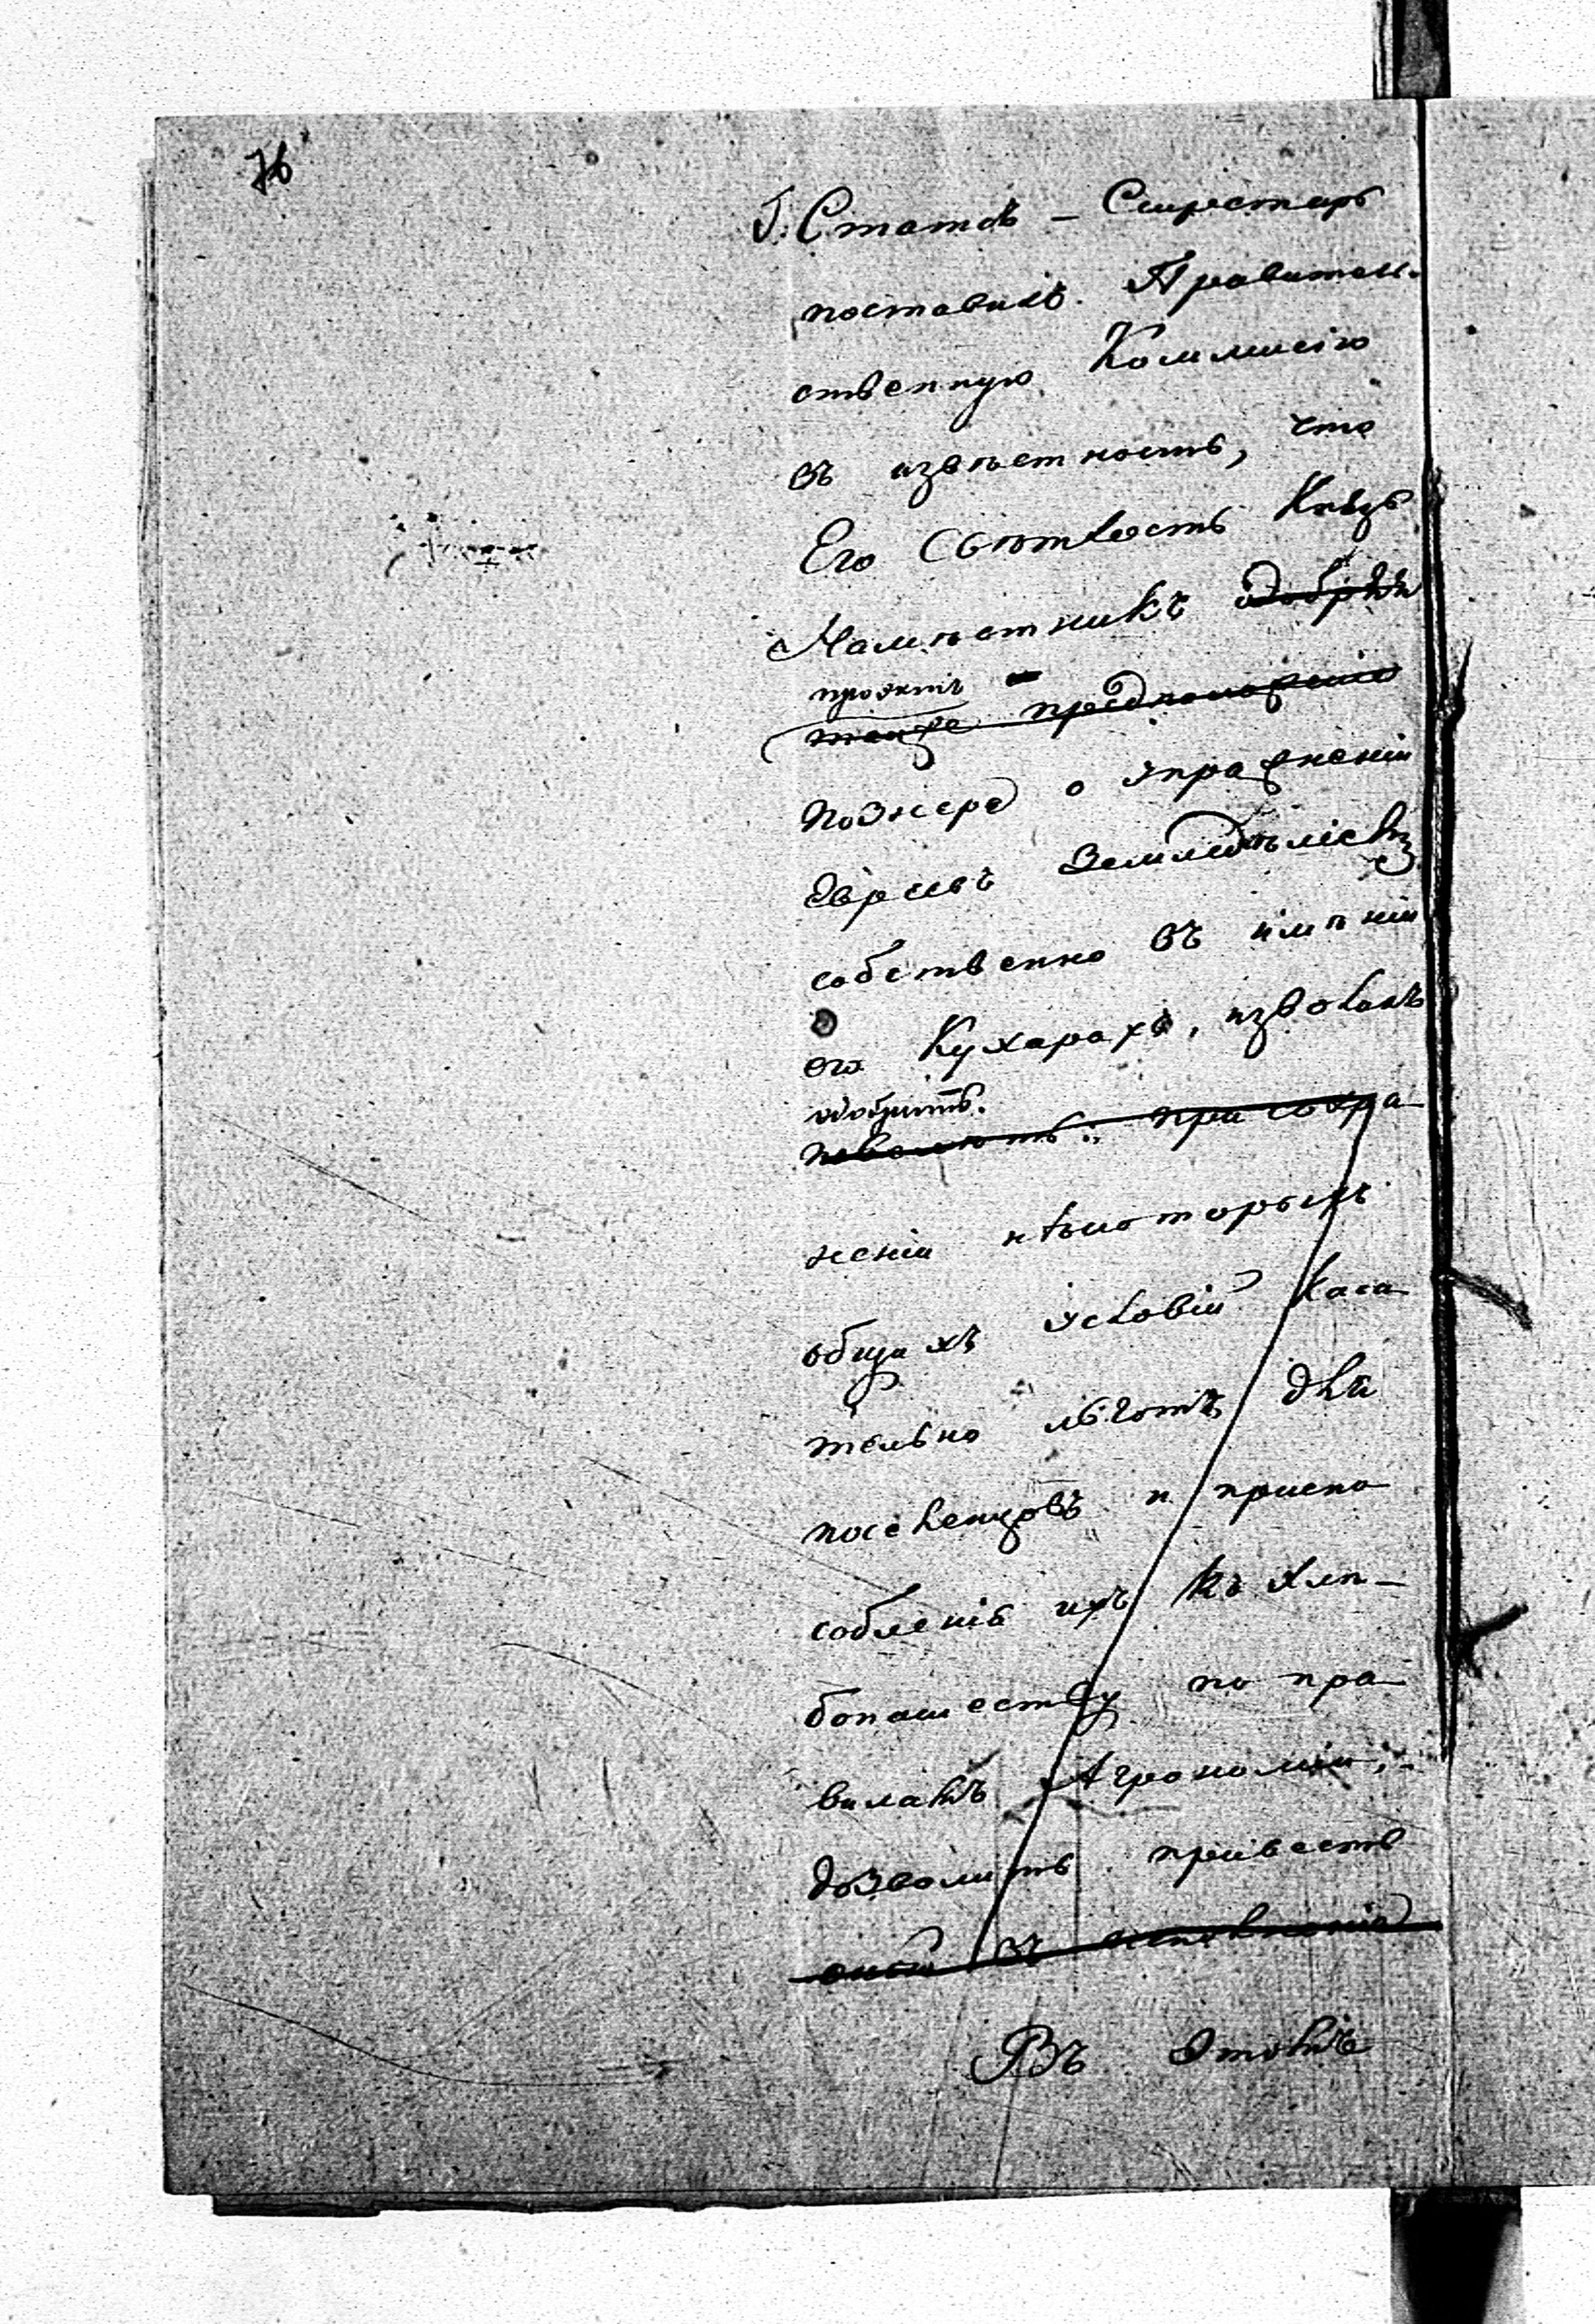 76
Г. Статсъ – Секретарь
поставилъ Правитель-
ственную Коммисію
въ извѣстность, что
Его Свѣтлость Князь
Намѣстникъ одобряя
проэктъ
также предположеніе
Познера о упражненіи
Евреевъ Земледѣліемъ
собственно въ имѣніи
его Кухарахъ, изволилъ
одобрить.
позволить: при сохра-
неніи нѣкоторыхъ
общихъ условій каса-
тельно льготъ для
поселенцовъ и приспо-
собленія ихъ къ хлѣ-
бопашеству по пра-
виламъ Агрономіи,
дозволить привесть
оный въ исполненіе
Въ Этомъ